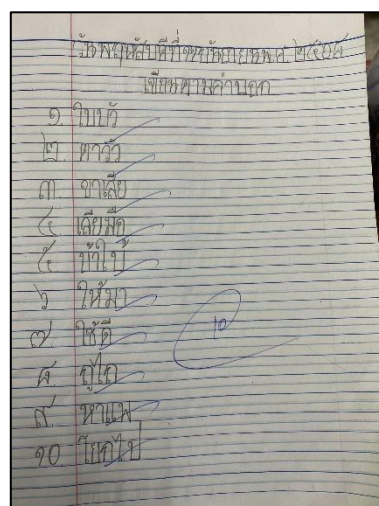 วันพฤหัสบดีที่ กันยายน พ.ศ. ๒๕๖๘
เขียนตามคำบอก
๑. ใบบัว
๒. ตาวัว
๓. ขาเสือ
๔. เสียมือ
๕. บ้าใบ้
๖ ให้มา
๗ ใช้ดี
๘ ถูไถ
๙. หาแพ
๑๐ โยกไป
๑๐